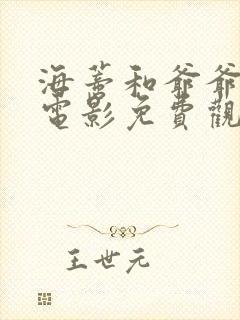 海蒂和爺爺
電影免費觀
王世元